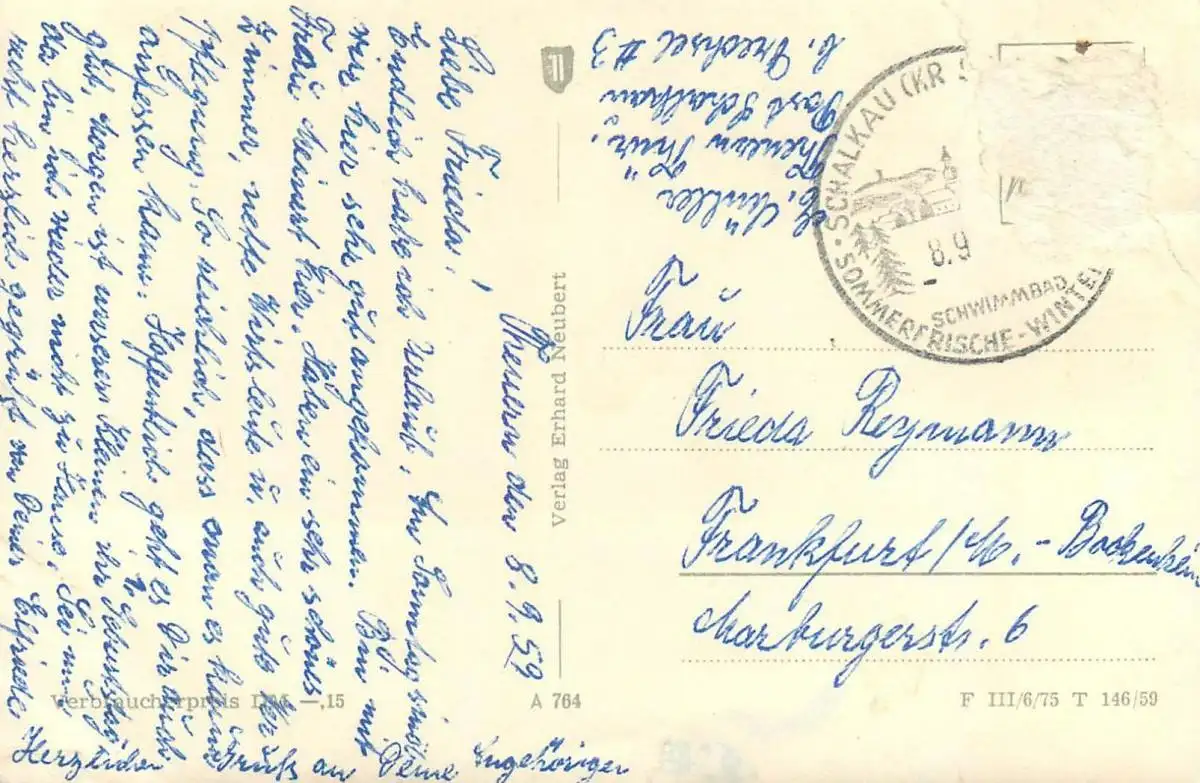 Theuern den 8.9.59
Liebe Frieda!
Endlich habe ich Urlaub. Am Samstag sind
wir hier sehr gut angekommen. Bin mit
Frau Meinert hier. Haben ein sehr schönes
Zimmer, nette Wirtsleute u. auch gute Ver-
pflegung. So reichlich, dass man es kaum
aufessen kann. Hoffentlich geht es Dir auch
gut. Morgen ist unserer Kleinen ihr Geburtstag
da bin ich wieder nicht zu Hause. Sei nun
recht herzlich gegrüßt von Deiner Elfriede.
Herzlichen Gruß an Deine Angehörigen
Verbraucherpreis DM —,15
A 764
Verlag Erhard Neubert
E. Müller
Theuern Thür.
Post Schalkau
b. Drechsel #3
SCHALKAU (KR
8.9
SCHWIMMBAD
SOMMERFRISCHE-WINTE
Frau
Frieda Reymann
Frankfurt/M.-Bockenheim
Marburgerstr. 6
F III/6/75 T 146/59